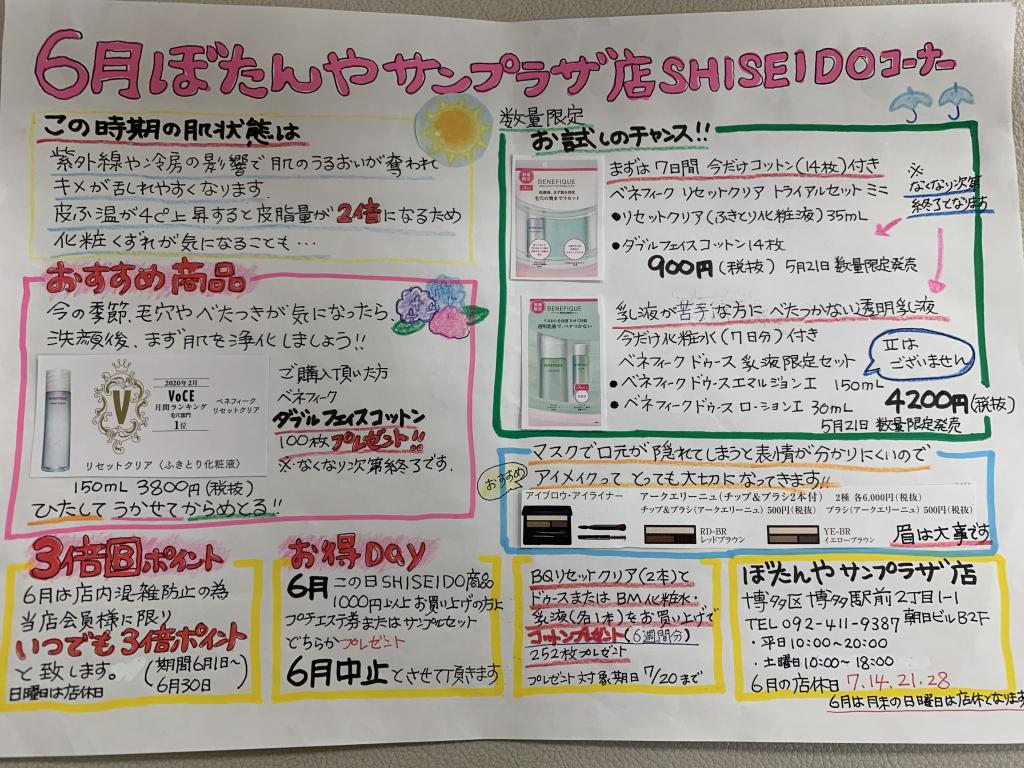 6月ぼたんやサンプラザ店SHISEIDOコーナー
この時期の肌状態は
紫外線や冷房の影響で肌のうるおいが奪われ
キメが乱れやすくなります
皮ふ温が4℃上昇すると皮脂量が2倍になるため
化粧くずれが気になることも…
おすすめ商品
今の季節、毛穴やべたつきが気になったら、
洗顔後、まず肌を浄化しましょう!!
2020年2月
VOCE
月間ランキング
毛穴部門
1位
ベネフィーク
リセットクリア
リセットクリア（ふきとり化粧液）
150mL 3800円(税抜)
ひたして うかせてからめとる!!
ご購入頂いた方
ベネフィーク
ダブルフェイスコットン
100枚プレゼント!!
※なくなり次第終了です.
数量限定
お試しのチャンス!!
まずは7日間 今だけコットン(14枚)付き
ベネフィーク リセットクリア トライアルセット ミニ
•リセットクリア(ふきとり化粧液)35mL
•ダブルフェイスコットン14枚
900円(税抜) 5月21日 数量限定発売
※
なくなり次第
終了となります
BENEFIQUE
BENEFIQUE
乳液が苦手な方に べたつかない透明乳液
今だけ化粧水(7日分)付き
ベネフィークドゥース 乳液限定セット
•ベネフィークドゥースエマルジョンⅠ 150mL
•ベネフィークドゥース ローションⅠ 30mL
4200円(税抜)
5月21日 数量限定発売
Ⅱは
ございません
マスクで口元が隠れてしまうと表情が分かりにくいので
アイメイクって とっても大切になってきます!!
おすすめ
アイブロウ・アイライナー
アークエリーニュ（チップ＆ブラシ2本付） 2種 各6,000円（税抜）
チップ＆ブラシ（アークエリーニュ）500円（税抜） ブラシ（アークエリーニュ）500円（税抜）
RD-BR
レッドブラウン
YE-BR
イエローブラウン
眉は大事です
3倍回ポイント
6月は店内混雑防止の為
当店会員様に限り
いつでも3倍ポイント
と致します。
(期間6月1日〜
6月30日)
日曜日は店休日
お得DAY
6月 この日SHISEIDO商品
1000円以上お買い上げの方に
プチエステ券またはサンプルセット
どちらかプレゼント
6月中止とさせて頂きます
BQリセットクリア(2本)と
ドゥースまたはBM化粧水・
乳液(各1本)をお買い上げで
コットンプレゼント(6週間分)
252枚プレゼント
プレゼント対象期日7/20まで
ぼたんやサンプラザ店
博多区博多駅前2丁目1-1
朝日ビルB2F
TEL 092-411-9387
・平日10:00~20:00
・土曜日10:00~18:00
6月の店休日 7.14.21.28
6月は月末の日曜日は店休となります